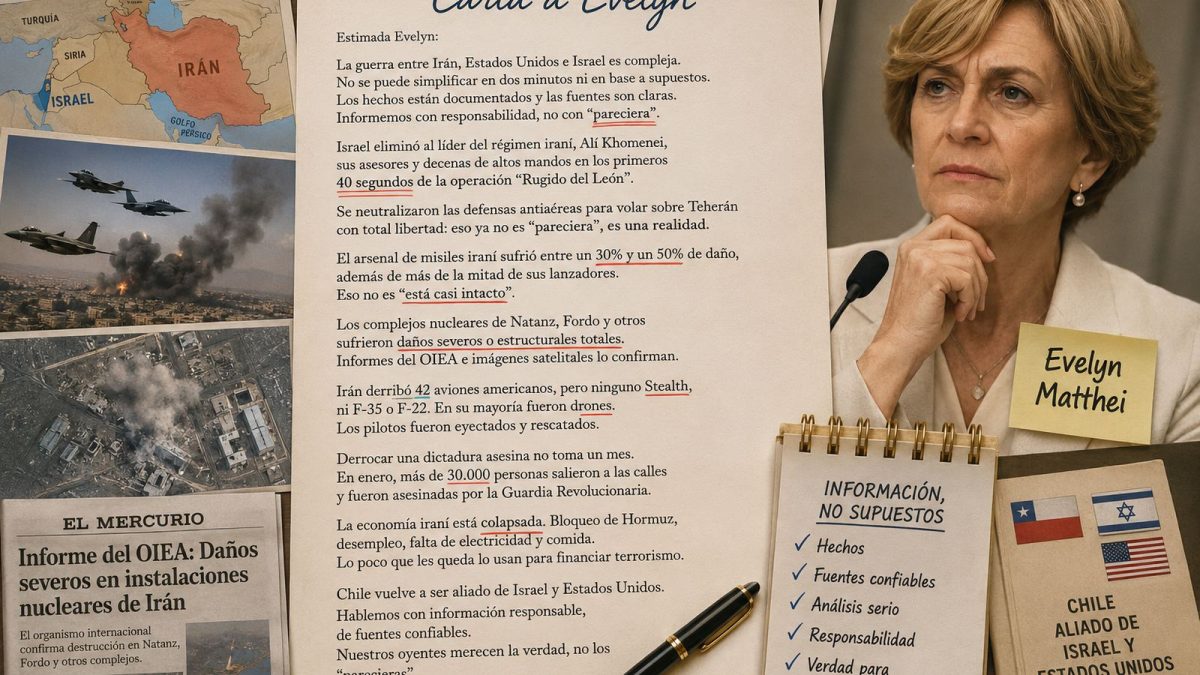 TURQUÍA
SIRIA
IRÁN
ISRAEL
GOLFO
PÉRSICO
EL MERCURIO
Informe del OIEA: Daños
severos en instalaciones
nucleares de Irán
El organismo internacional
confirma destrucción en Natanz,
Fordo y otros complejos.
Carta a Evelyn
Estimada Evelyn:
La guerra entre Irán, Estados Unidos e Israel es compleja.
No se puede simplificar en dos minutos ni en base a supuestos.
Los hechos están documentados y las fuentes son claras.
Informemos con responsabilidad, no con “pareciera”.
Israel eliminó al líder del régimen iraní, Alí Khomenei,
sus asesores y decenas de altos mandos en los primeros
40 segundos de la operación “Rugido del León”.
Se neutralizaron las defensas antiaéreas para volar sobre Teherán
con total libertad: eso ya no es “pareciera”, es una realidad.
El arsenal de misiles iraní sufrió entre un 30% y un 50% de daño,
además de más de la mitad de sus lanzadores.
Eso no es “está casi intacto”.
Los complejos nucleares de Natanz, Fordo y otros
sufrieron daños severos o estructurales totales.
Informes del OIEA e imágenes satelitales lo confirman.
Irán derribó 42 aviones americanos, pero ninguno Stealth,
ni F-35 o F-22. En su mayoría fueron drones.
Los pilotos fueron eyectados y rescatados.
Derrocar una dictadura asesina no toma un mes.
En enero, más de 30.000 personas salieron a las calles
y fueron asesinadas por la Guardia Revolucionaria.
La economía iraní está colapsada. Bloqueo de Hormuz,
desempleo, falta de electricidad y comida.
Lo poco que les queda lo usan para financiar terrorismo.
Chile vuelve a ser aliado de Israel y Estados Unidos.
Hablemos con información responsable,
de fuentes confiables.
Nuestros oyentes merecen la verdad, no los
“parecieras”
Evelyn
Matthei
INFORMACIÓN,
NO SUPUESTOS
✓ Hechos
✓ Fuentes confiables
✓ Análisis serio
✓ Responsabilidad
✓ Verdad para
CHILE
ALIADO DE
ISRAEL Y
ESTADOS UNIDOS